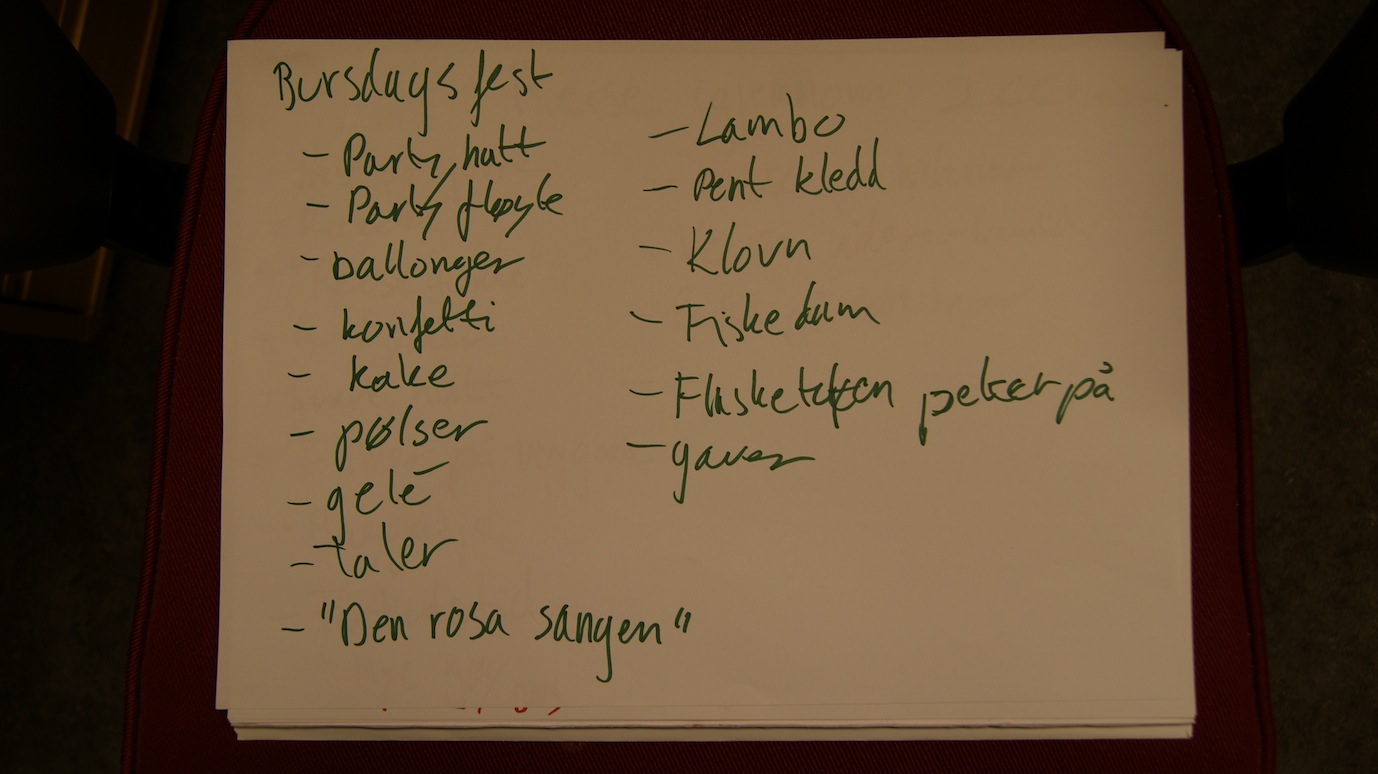 Bursdagsfest
- Party hatt
- Party fløyte
- ballonger
- konfetti
- kake
- pølser
- gelé
- taler
- "Den rosa sangen"
- Lambo
- Pent kledd
- Klovn
- Fiskedam
- Flasketuten peker på
- gaver